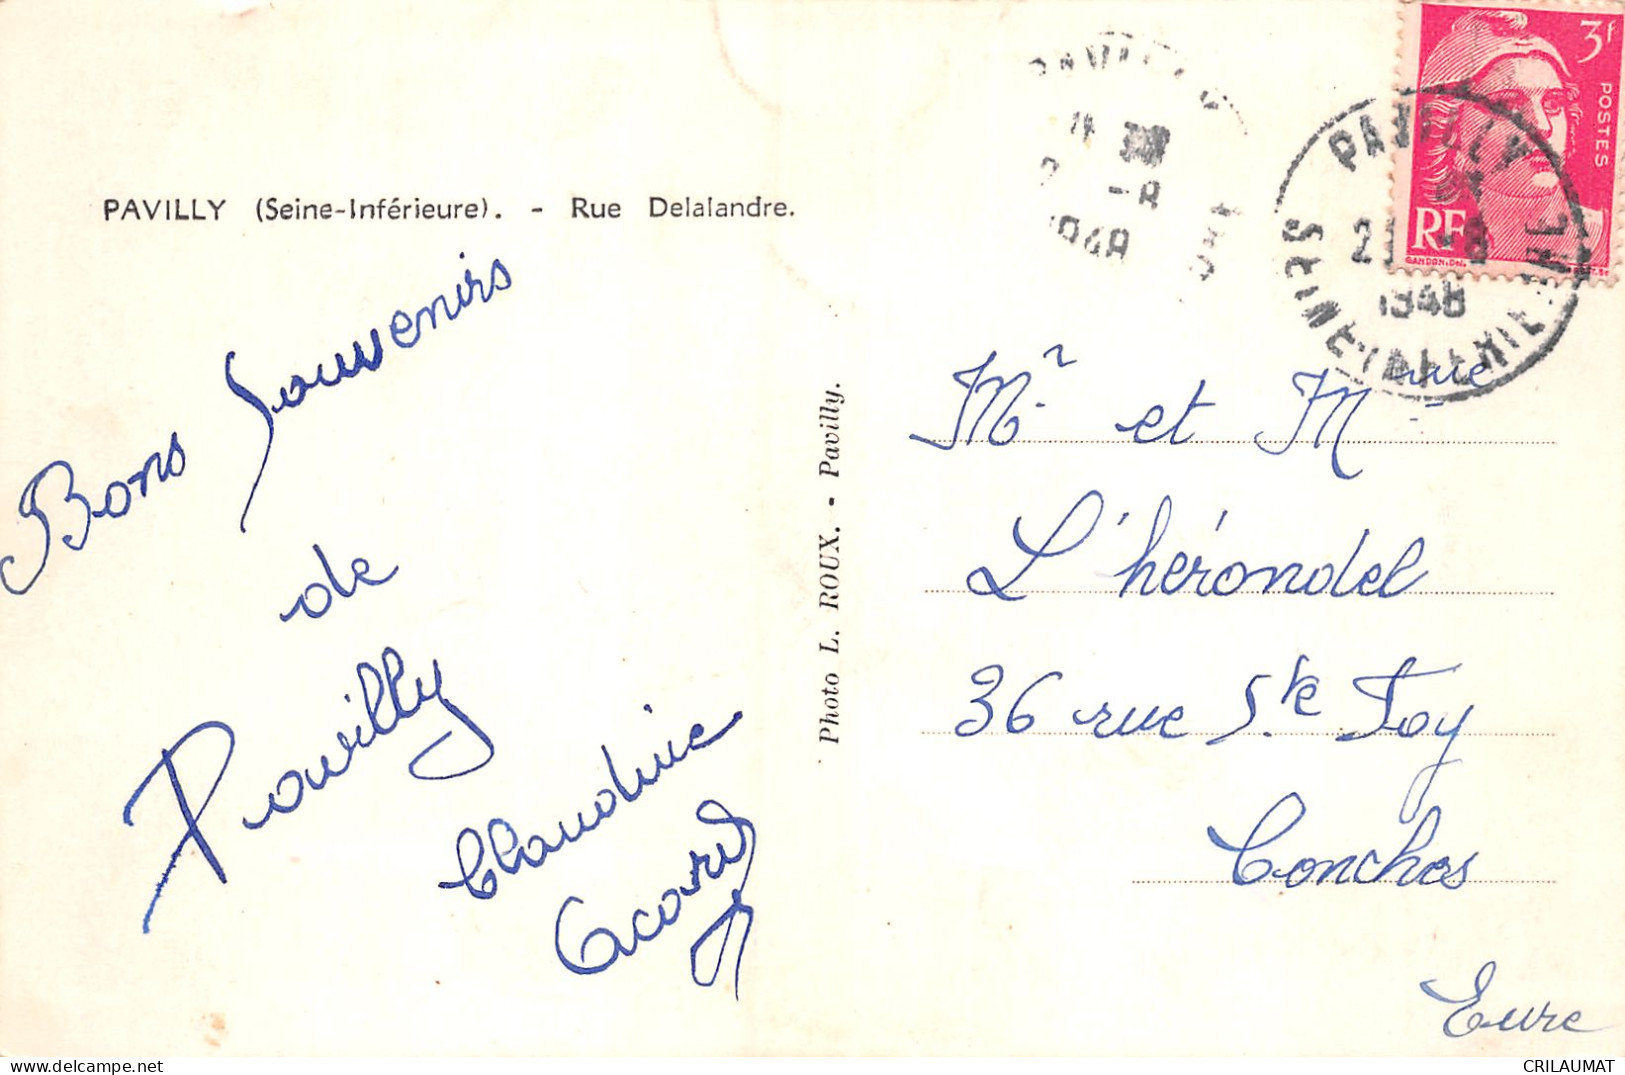 PAVILLY (Seine-Inférieure). - Rue Delalandre.
Bons Souvenirs
de
Pavilly
Claudine
Photo L. ROUX. - Pavilly.
3f
POSTES
RF
GANDON.Del.
PAVILLY
21 -8
1948
SEINE-INFERIEURE
PAVILLY
1948
Mr. et Mme
L'hérondel
36 rue Ste Foy
Conches
Eure
CRILAUMAT